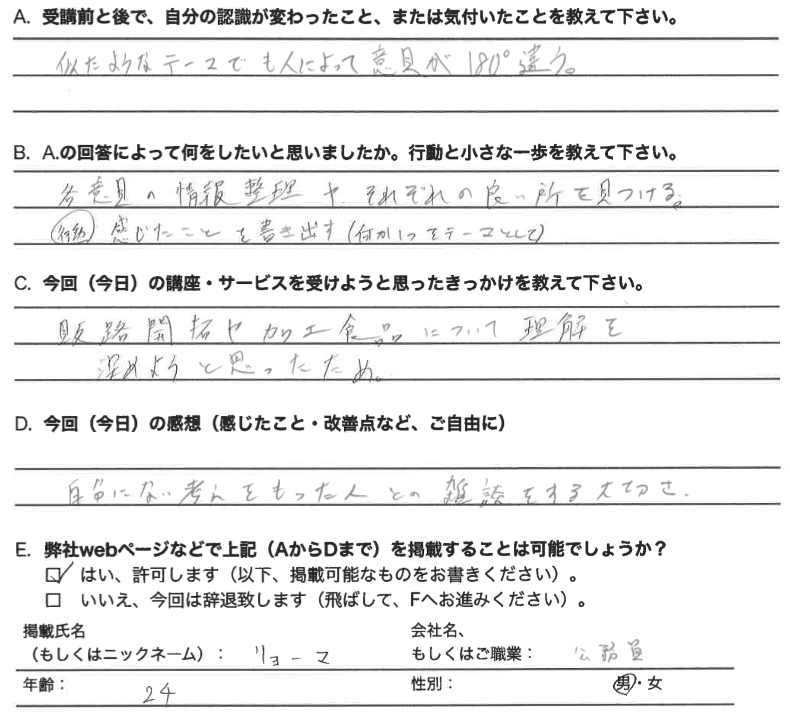 A. 受講前と後で、自分の認識が変わったこと、または気付いたことを教えて下さい。
似たようなテーマでも人によって意見が180°違う。
B. A.の回答によって何をしたいと思いましたか。行動と小さな一歩を教えて下さい。
各意見の情報整理や、それぞれの良い所を見つける。
行動 感じたことを書き出す(何か1つをテーマとして)
C. 今回（今日）の講座・サービスを受けようと思ったきっかけを教えて下さい。
販路開拓や加工食品について理解を
深めようと思ったため。
D. 今回（今日）の感想（感じたこと・改善点など、ご自由に）
自分にない考えをもった人との雑談をする大切さ.
E. 弊社webページなどで上記（AからDまで）を掲載することは可能でしょうか？
☑ はい、許可します（以下、掲載可能なものをお書きください）。
□ いいえ、今回は辞退致します（飛ばして、Fへお進みください）。
掲載氏名 会社名、
（もしくはニックネーム）： リョーマ もしくはご職業： 公務員
年齢： 24 性別： 男・女